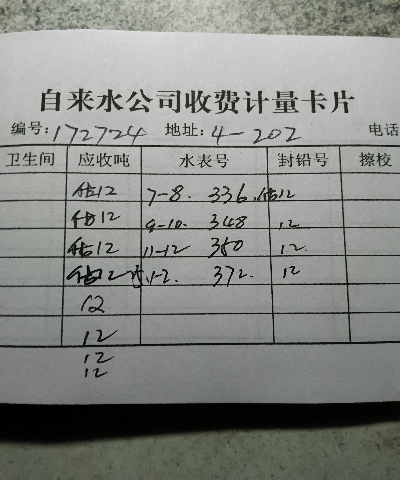 自来水公司收费计量卡片
编号: 172724 地址: 4-202 电话
卫生间 应收吨 水表号 封铅号 擦校
估12 7-8. 336. 估12
估12 9-10. 348 12
估12 11-12 360 12.
估12 1-2. 372. 12
12
12
12
12